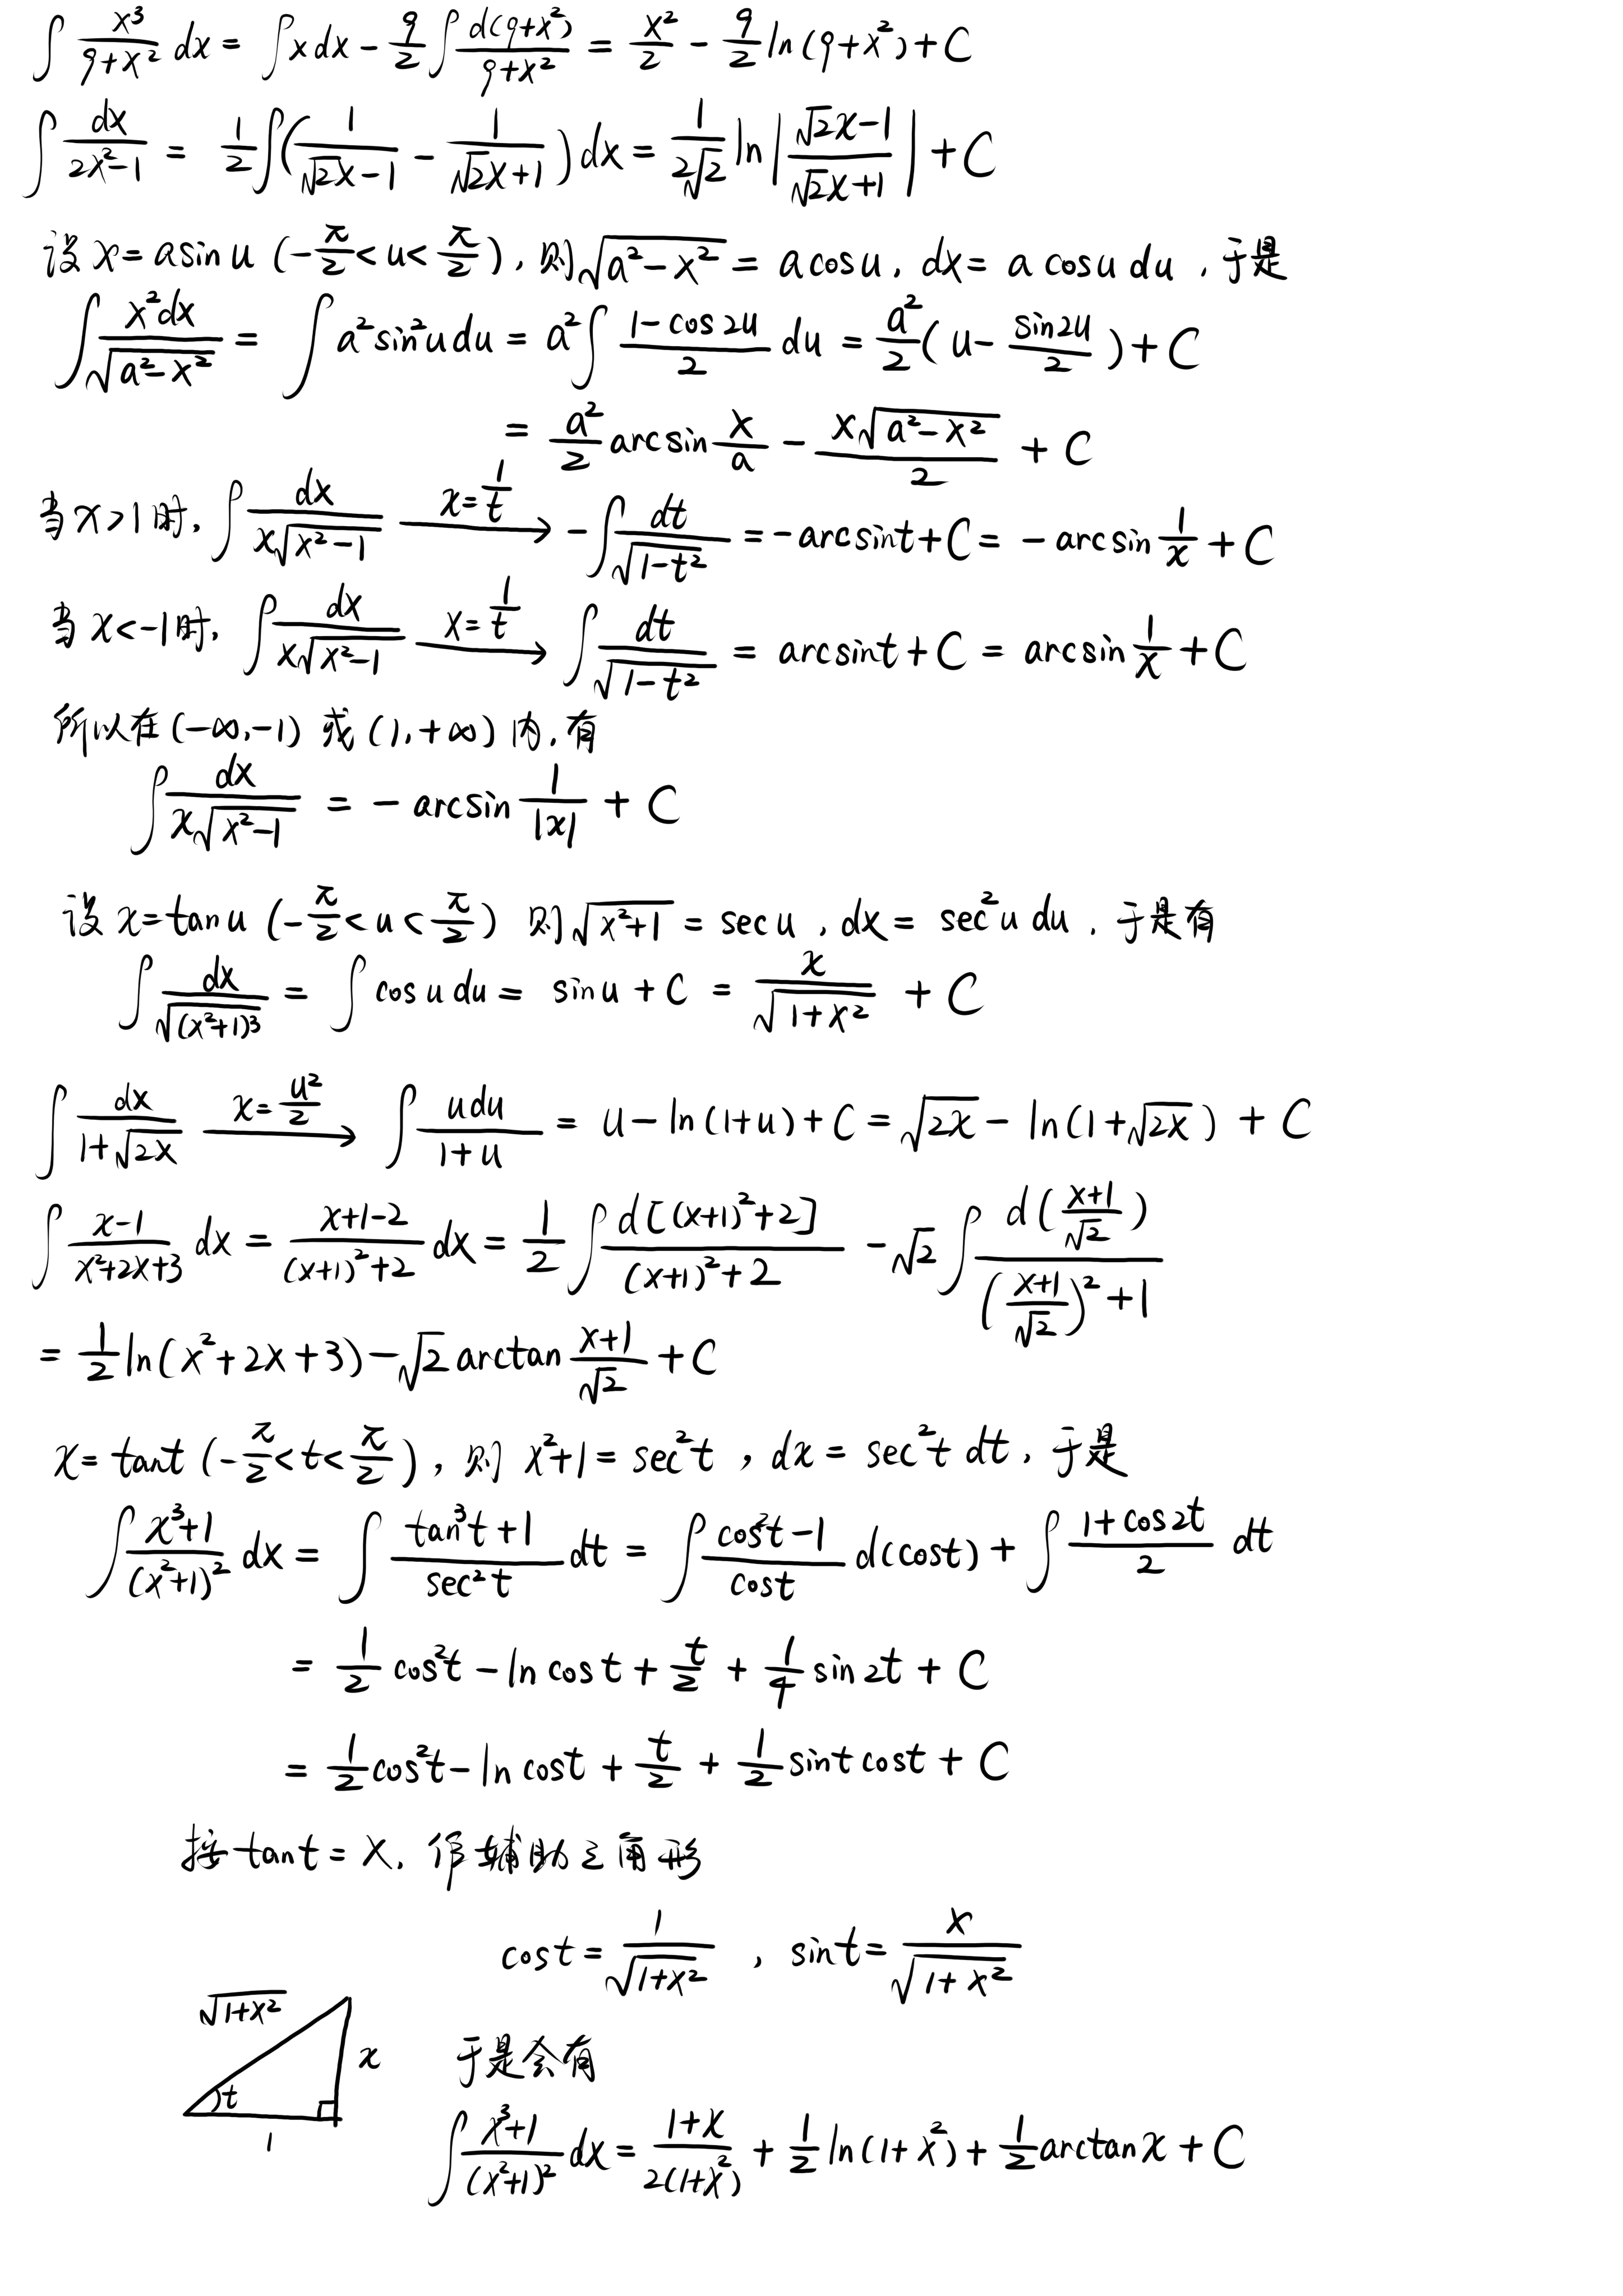 ∫ x³/(9+x²) dx = ∫ x dx − 9/2 ∫ d(9+x²)/(9+x²) = x²/2 − 9/2 ln(9+x²) + C
∫ dx/(2x²−1) = 1/2 ∫ (1/(√2x−1) − 1/(√2x+1)) dx = 1/(2√2) ln|(√2x−1)/(√2x+1)| + C
设 x = a sin u (−π/2 < u < π/2), 则 √(a²−x²) = a cos u, dx = a cos u du, 于是
∫ x²dx/√(a²−x²) = ∫ a² sin²u du = a² ∫ (1−cos 2u)/2 du = a²/2 (u − sin 2u/2) + C
= a²/2 arcsin x/a − x√(a²−x²)/2 + C
当 x>1 时, ∫ dx/(x√(x²−1)) —x=1/t→ −∫ dt/√(1−t²) = −arcsin t + C = −arcsin 1/x + C
当 x<−1 时, ∫ dx/(x√(x²−1)) —x=1/t→ ∫ dt/√(1−t²) = arcsin t + C = arcsin 1/x + C
所以在 (−∞,−1) 或 (1,+∞) 内, 有
∫ dx/(x√(x²−1)) = −arcsin 1/|x| + C
设 x = tan u (−π/2 < u < π/2) 则 √(x²+1) = sec u, dx = sec²u du, 于是有
∫ dx/√((x²+1)³) = ∫ cos u du = sin u + C = x/√(1+x²) + C
∫ dx/(1+√2x) —x=u²/2→ ∫ u du/(1+u) = u − ln(1+u) + C = √2x − ln(1+√2x) + C
∫ (x−1)/(x²+2x+3) dx = (x+1−2)/((x+1)²+2) dx = 1/2 ∫ d[(x+1)²+2]/((x+1)²+2) − √2 ∫ d((x+1)/√2)/(((x+1)/√2)²+1)
= 1/2 ln(x²+2x+3) − √2 arctan (x+1)/√2 + C
x = tan t (−π/2 < t < π/2), 则 x²+1 = sec²t, dx = sec²t dt, 于是
∫ (x³+1)/(x²+1)² dx = ∫ (tan³t+1)/sec²t dt = ∫ (cos²t−1)/cos t d(cos t) + ∫ (1+cos 2t)/2 dt
= 1/2 cos²t − ln cos t + t/2 + 1/4 sin 2t + C
= 1/2 cos²t − ln cos t + t/2 + 1/2 sin t cos t + C
按 tan t = x, 作辅助三角形
cos t = 1/√(1+x²), sin t = x/√(1+x²)
√(1+x²)
x
t
1
于是会有
∫ (x³+1)/(x²+1)² dx = (1+x)/(2(1+x²)) + 1/2 ln(1+x²) + 1/2 arctan x + C